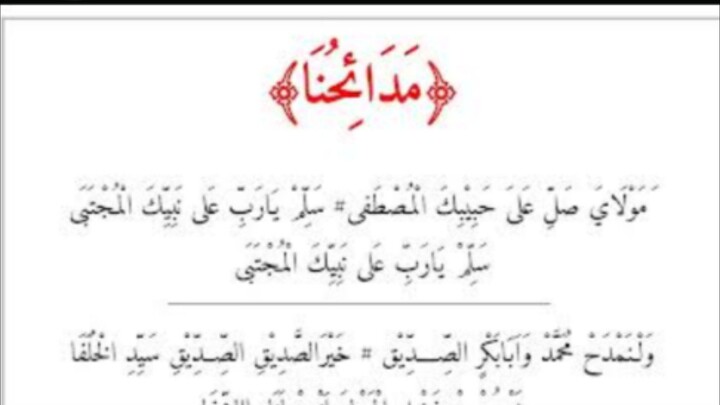 ﴿مَدَائِحُنَا﴾
مَوْلَايَ صَلِّ عَلَىَ حَبِيْبِكَ الْمُصْطَفى# سَلِّمْ يَارَبِّ عَلى نَبِيِّكَ الْمُجْتَبَى
سَلِّمْ يَارَبِّ عَلى نَبِيِّكَ الْمُجْتَبَى
وَلْنَمْدَحْ مُحَمَّدْ وَاَبَابَكْرٍ الصِّـــدِّيْق # خَيْرَالصَّدِيْقِ الصِّـدِّيْقِ سَيِّدِ الْخُلَفَا